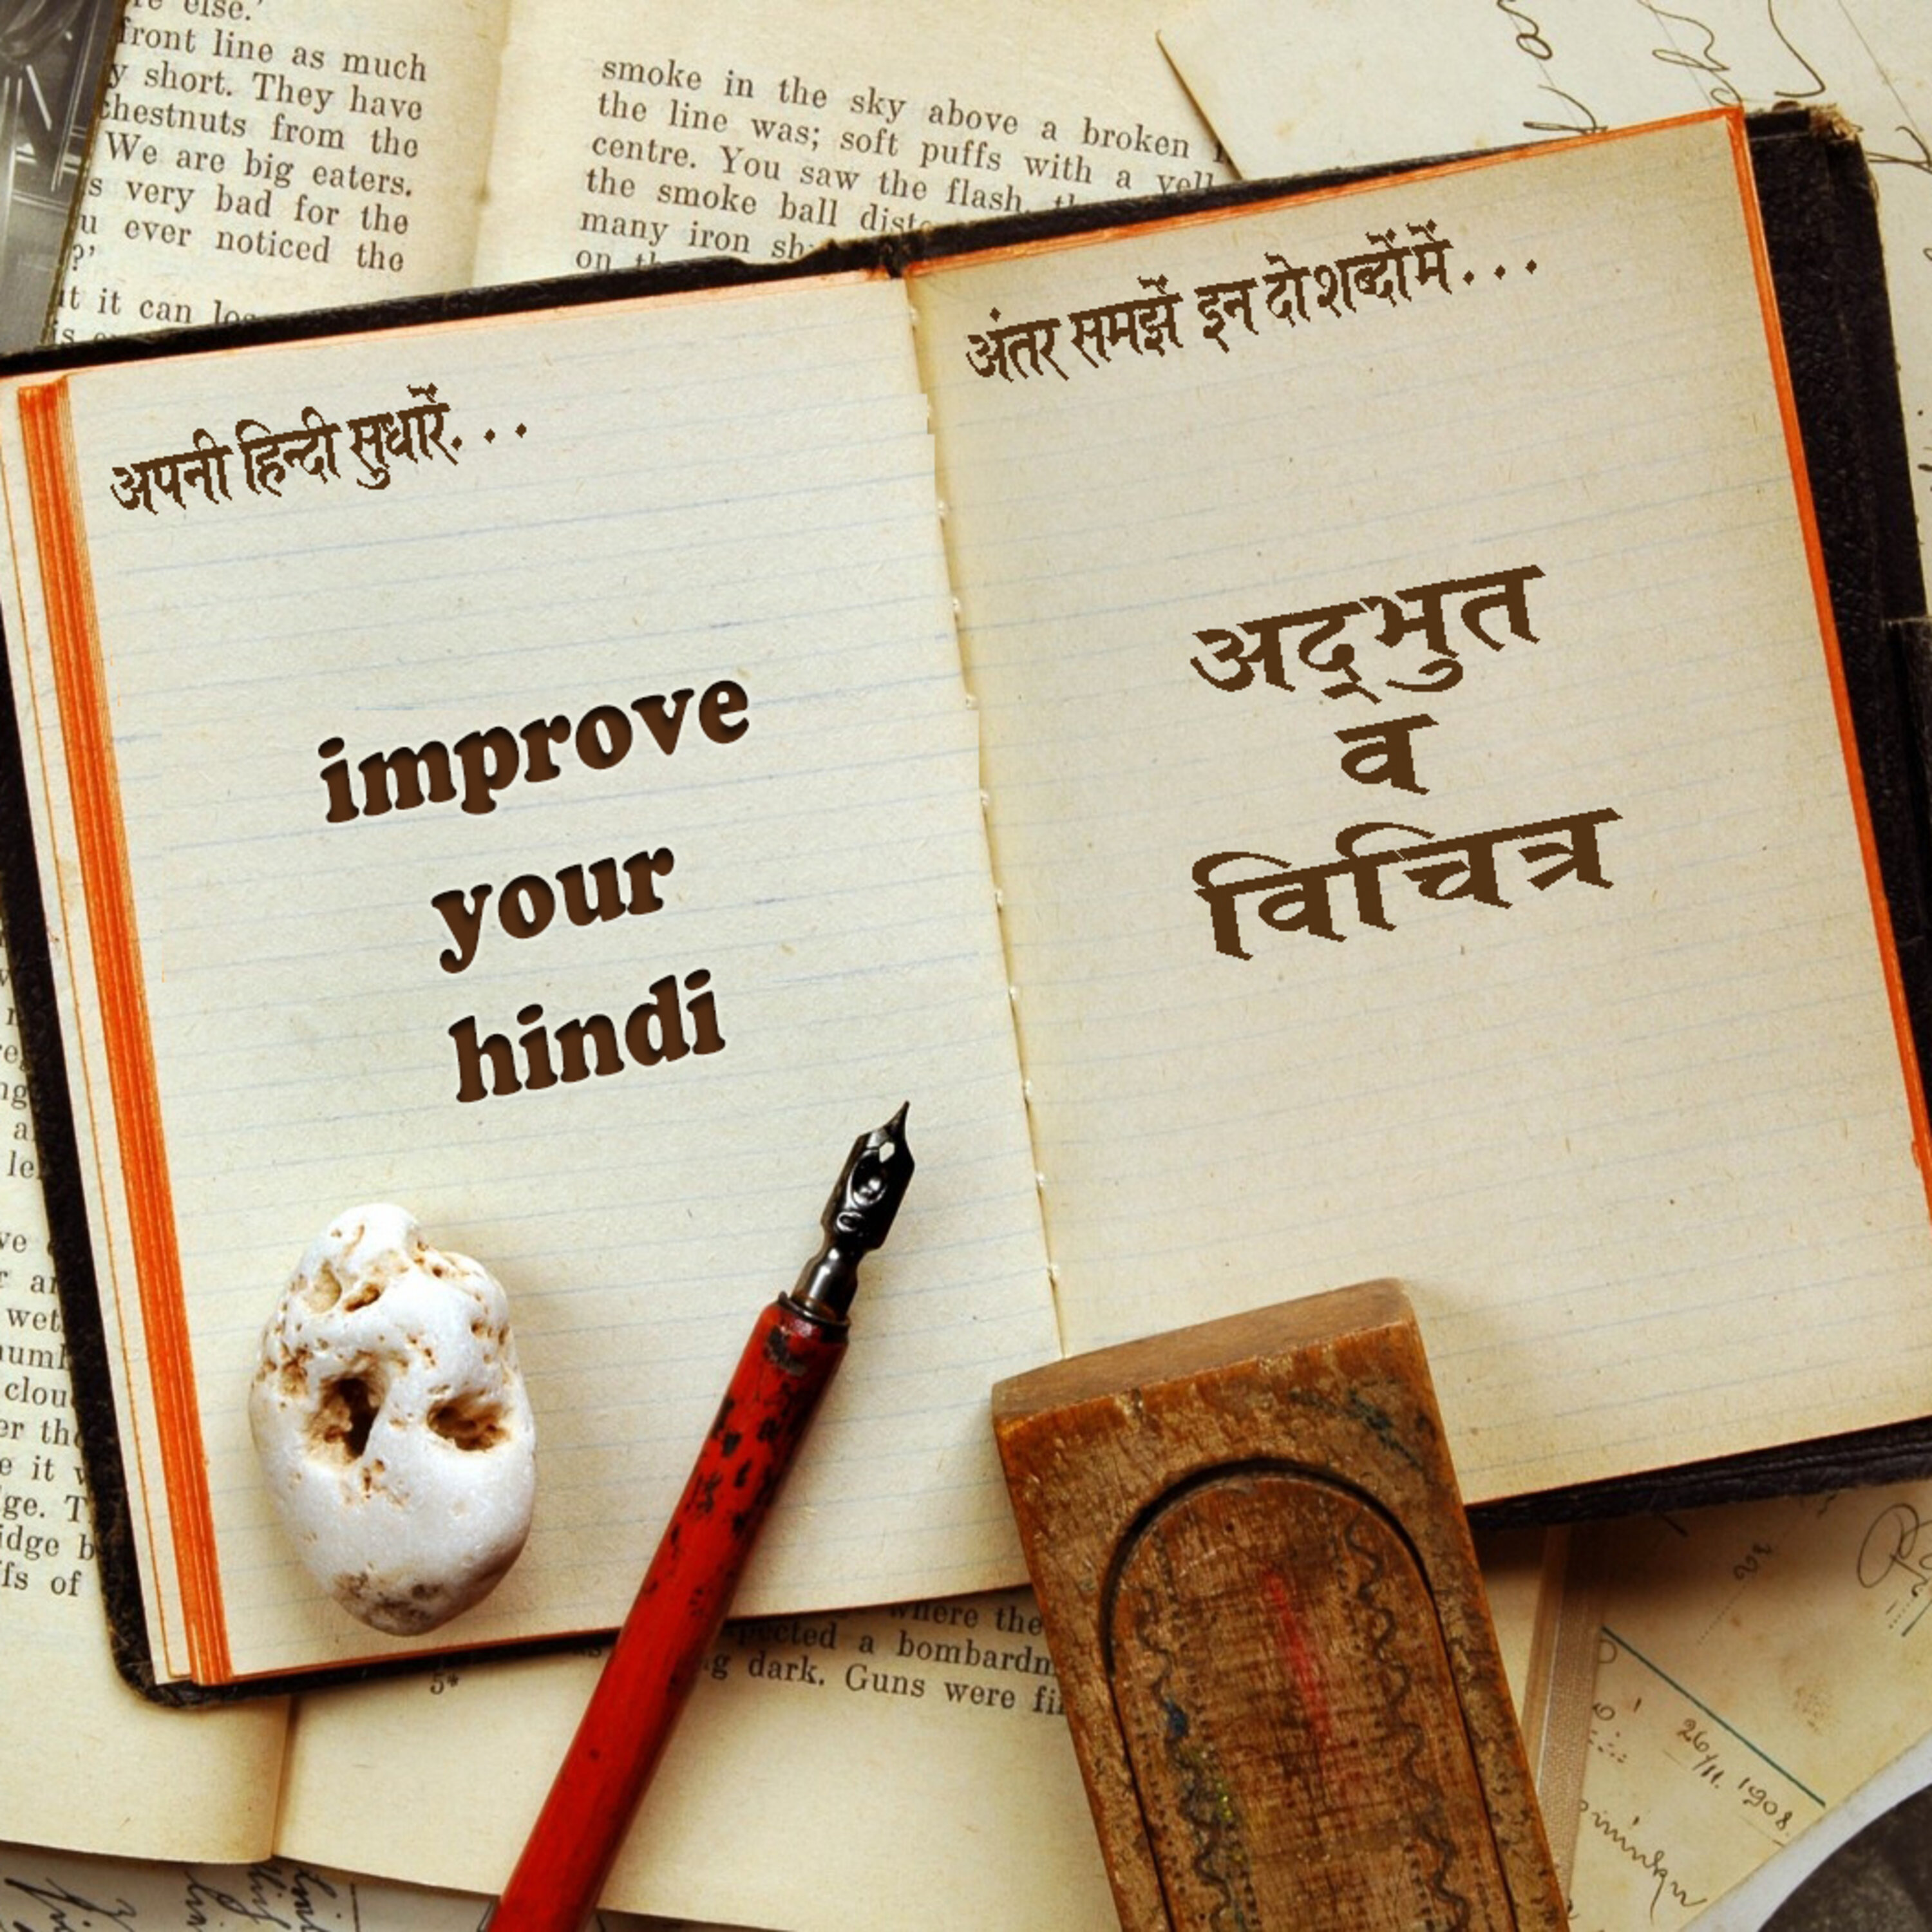 re else.'
front line as much
y short. They have
chestnuts from the
We are big eaters.
s very bad for the
u ever noticed the
?'
it it can
smoke in the sky above a broken
the line was; soft puffs with a
centre. You saw the flash,
the smoke ball
many iron
on
अपनी हिन्दी सुधारें...
improve
your
hindi
अंतर समझें इन दो शब्दों में...
अद्‌भुत
व
विचित्र
wet
clou
er the
it
ge. T
idge b
fs of
where the
a bombardm
g dark. Guns were
5*
26/11. 1908.